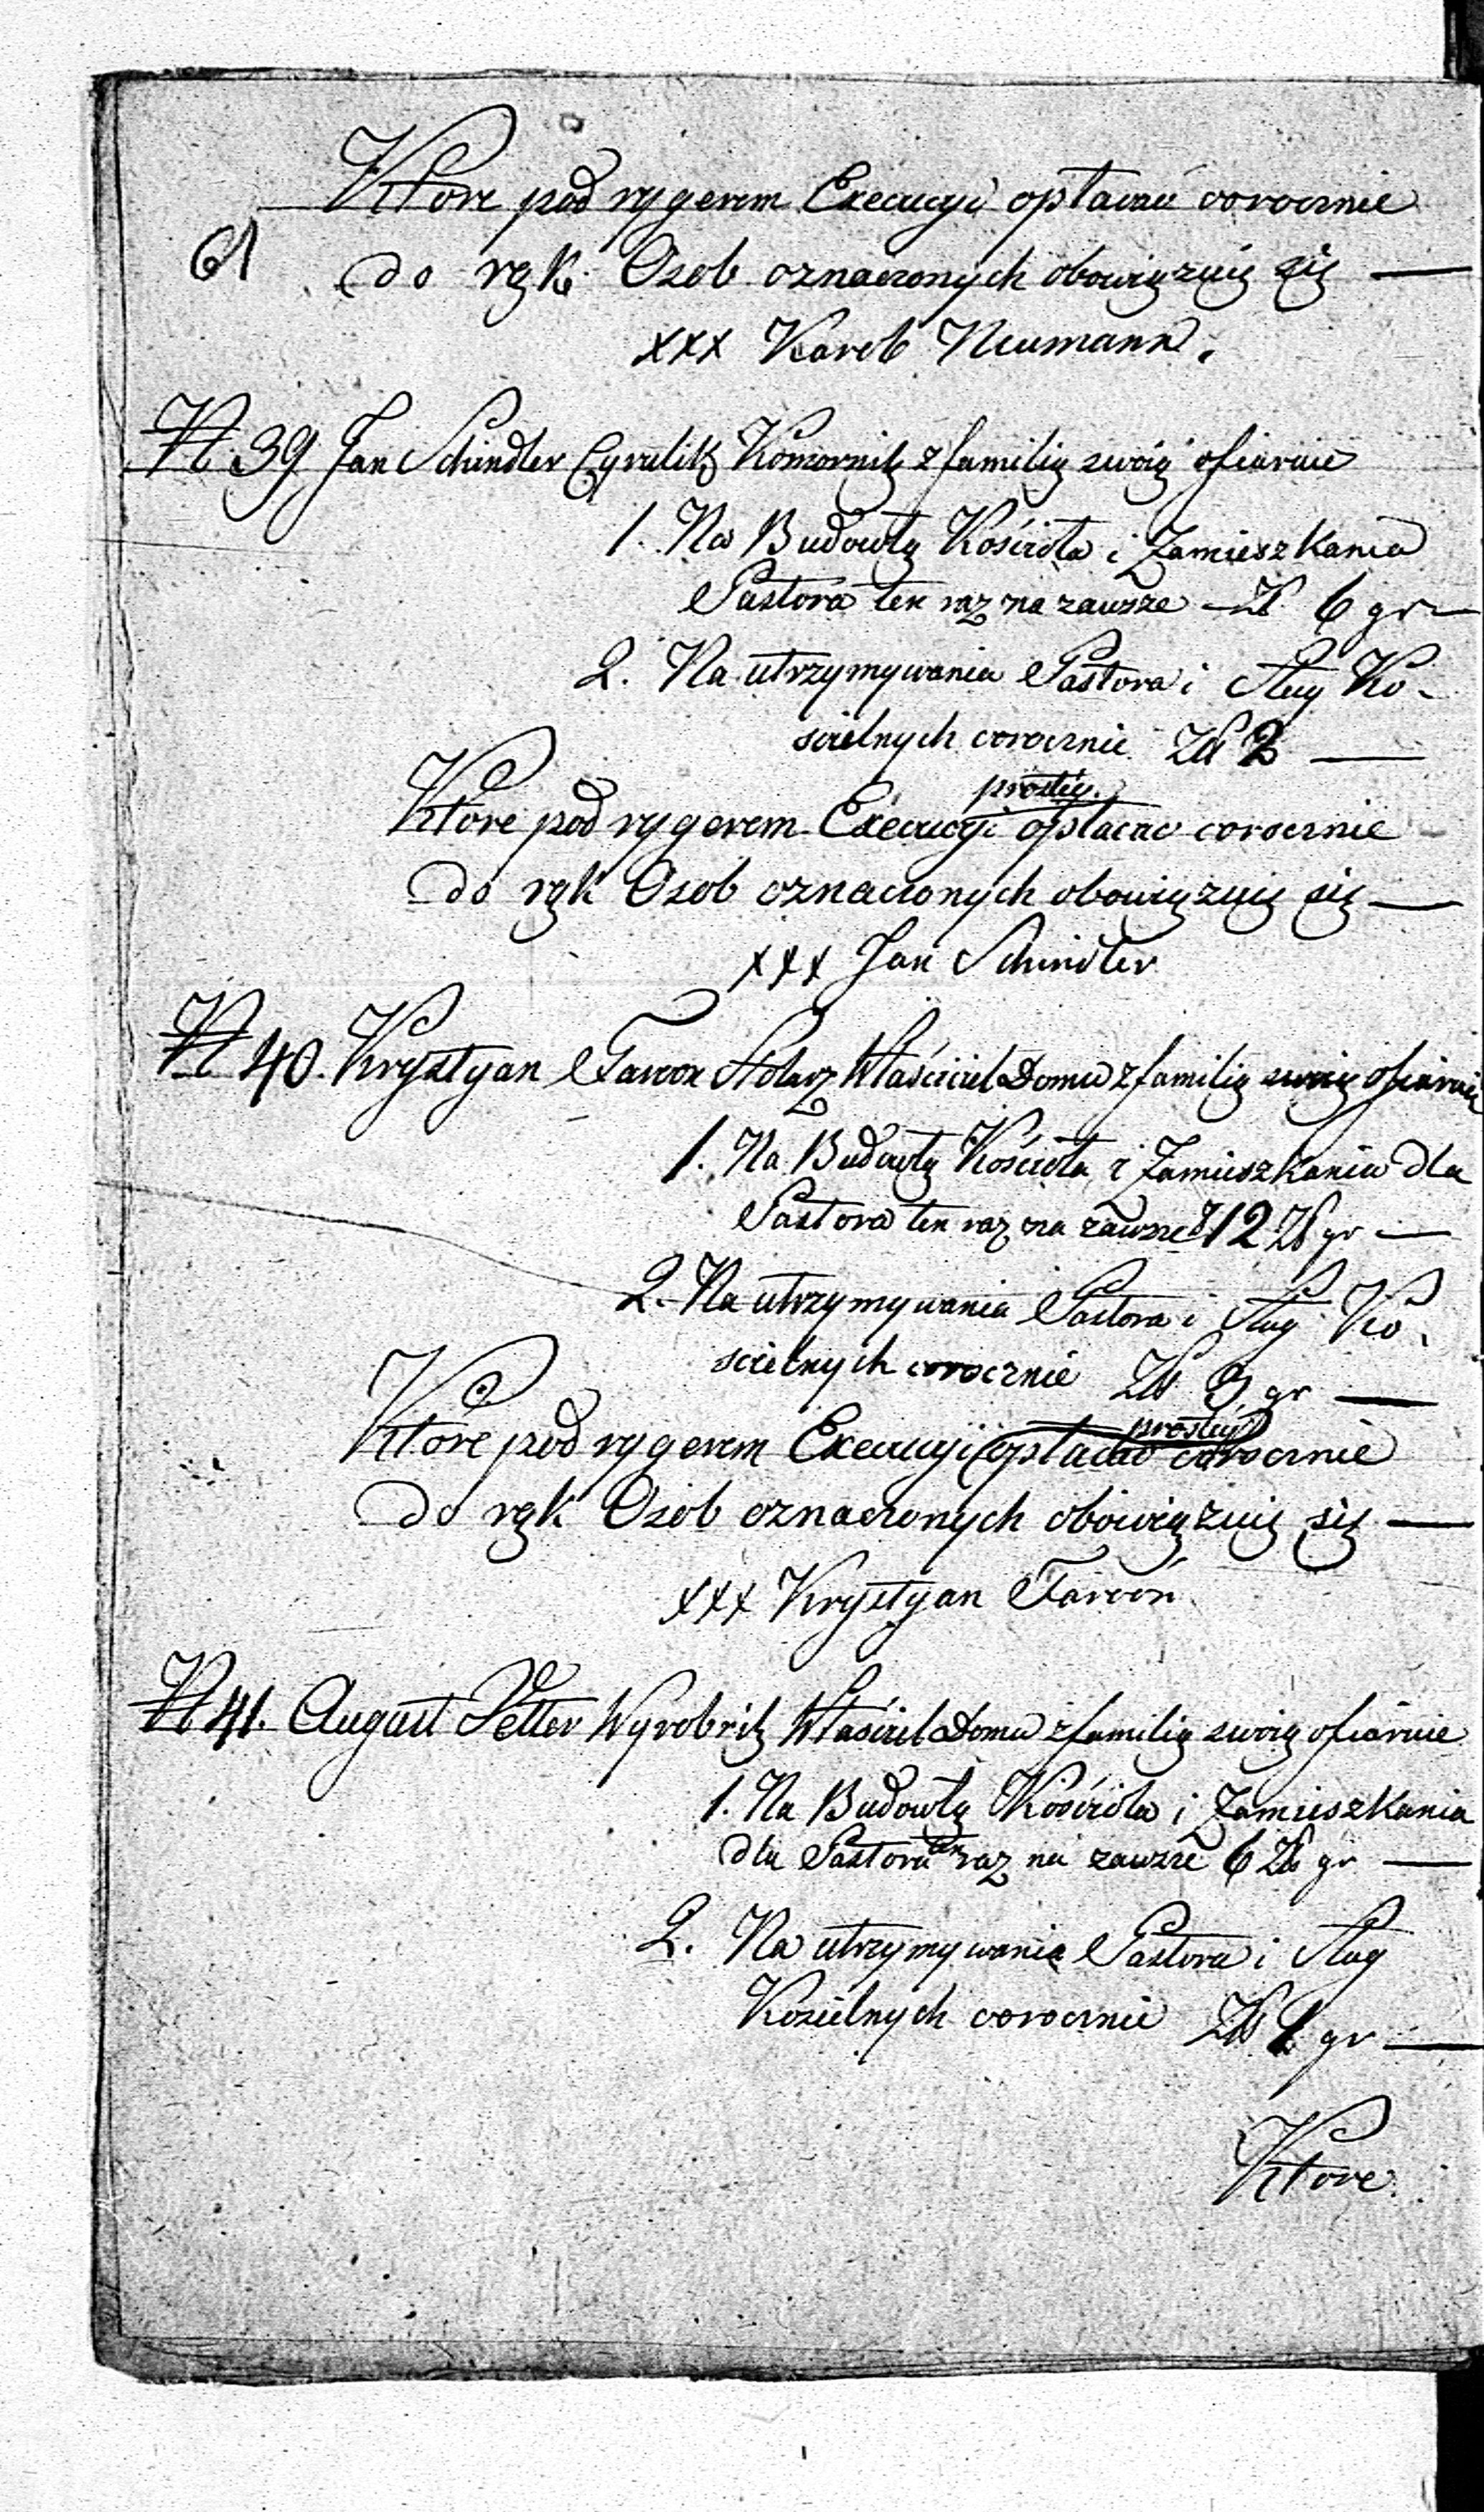 Które pod rygerem Execucyi opłacać corocznie
61 do rąk Osob oznaczonych obowięzuię się —
xxx Karol Neumann.
N 39 Jan Schindler Cyrulik Komornik z familią swoią ofiaruie
1. Na Budowlą Kościoła i Zamieszkania
Pastora ten raz na zawsze — Zł 6 gr —
2. Na utrzymywania Pastora i Sług Ko-
scielnych corocznie Zł 2 —
prostéy
Które pod rygerem Execucyi opłacac corocznie
do rąk Osob oznaczonych obowięzuię się —
xxx Jan Schindler
N 40. Krysztyan Stolarz Właściciel Domu z familią swoią ofiaruie
1. Na Budowlą Kościoła i Zamieszkania dla
Pastora ten raz na zawsze 12 Zł gr —
2. Na utrzymywania Pastora i Sług Ko-
scielnych corocznie Zł 3 gr —
prostéy
Które pod rygerem Execucyi opłacać corocznie
do rąk Osob oznaczonych obowięzuię się —
xxx Krysztyan
N 41. August Petter Wyrobnik Właściciel Domu z familią swoią ofiaruie
1. Na Budowlą Kościoła i Zamieszkania
dla Pastora ten raz na zawsze 6 Zł gr —
2. Na utrzymywanie Pastora i Sług
Koscielnych corocznie Zł 1 gr —
Które